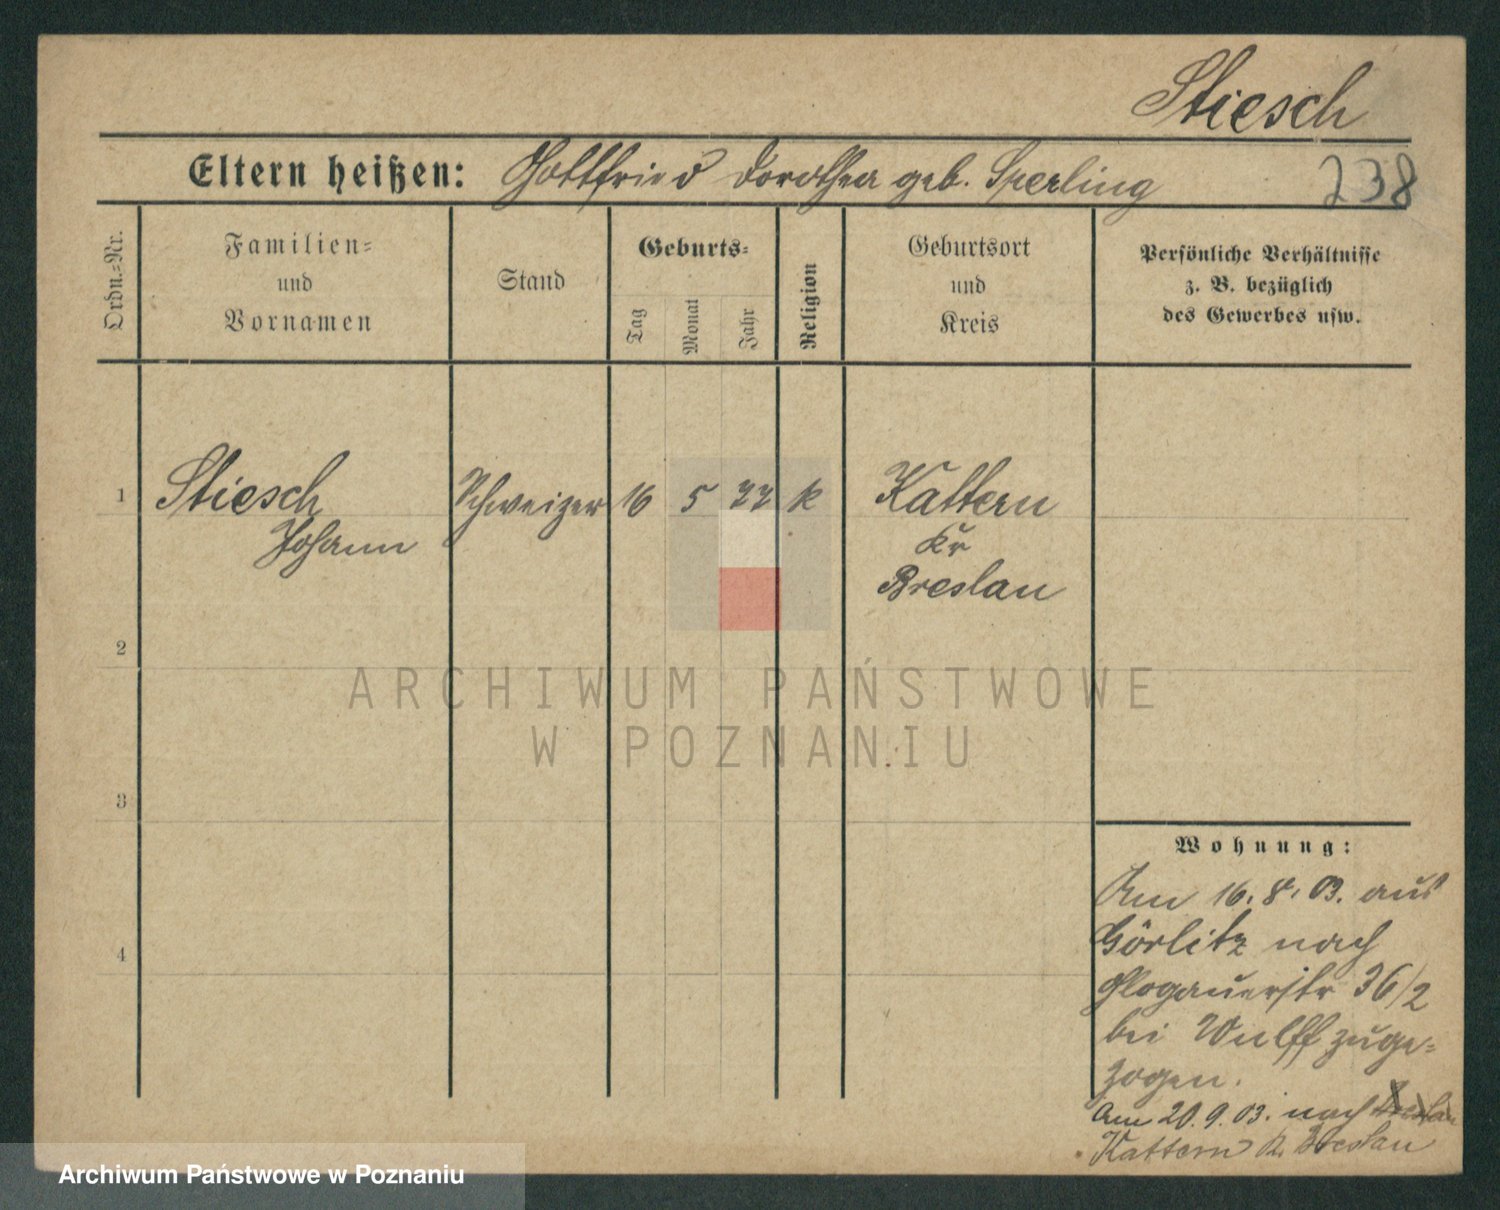 Stiesch
Eltern heißen: Gottfried Dorothea geb. Sperling
238
Ordn.=Nr.
Familien=
und
Vornamen
Stand
Geburts=
Tag
Monat
Jahr
Religion
Geburtsort
und
Kreis
Persönliche Verhältnisse
z. B. bezüglich
des Gewerbes usw.
1 Stiesch Schweizer 16 5 77 k Kattern
Johann Kr
Breslau
2
ARCHIWUM PAŃSTWOWE
W POZNANIU
3
Wohnung:
Am 16.8.03. aus
4 Görlitz nach
Glogauerstr 36/2
bei Wulff zuge=
zogen.
Am 20.9.03. nach Breslau
Kattern K. Breslau
Archiwum Państwowe w Poznaniu